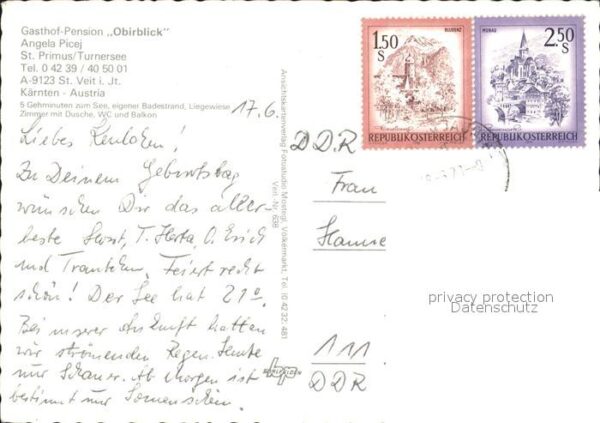 Gasthof-Pension „Obirblick"
Angela Picej
St. Primus/Turnersee
Tel. 0 42 39 / 40 50 01
A-9123 St. Veit i. Jt.
Kärnten - Austria
5 Gehminuten zum See, eigener Badestrand, Liegewiese
Zimmer mit Dusche, WC und Balkon
17.6.
Liebes
Zu Deinem Geburtstag
wünschen Dir das aller-
beste Horst, T. Herta, O. Erich
und Trautchen. Feiert recht
schön! Der See hat 21°.
Bei unserer Ankunft hatten
wir strömenden Regen. Heute
nur Schauer. Ab Morgen ist
bestimmt nur Sonnenschein.
Ansichtskartenverlag Fotostudio Mostögl, Völkermarkt, Tel. (0 42 32) 481
Verl.-Nr. 638
1.50
S
BLUDENZ
REPUBLIK ÖSTERREICH
MURAU
2.50
S
REPUBLIK ÖSTERREICH
DDR
Frau
Hanne
111
DDR
privacy protection
Datenschutz